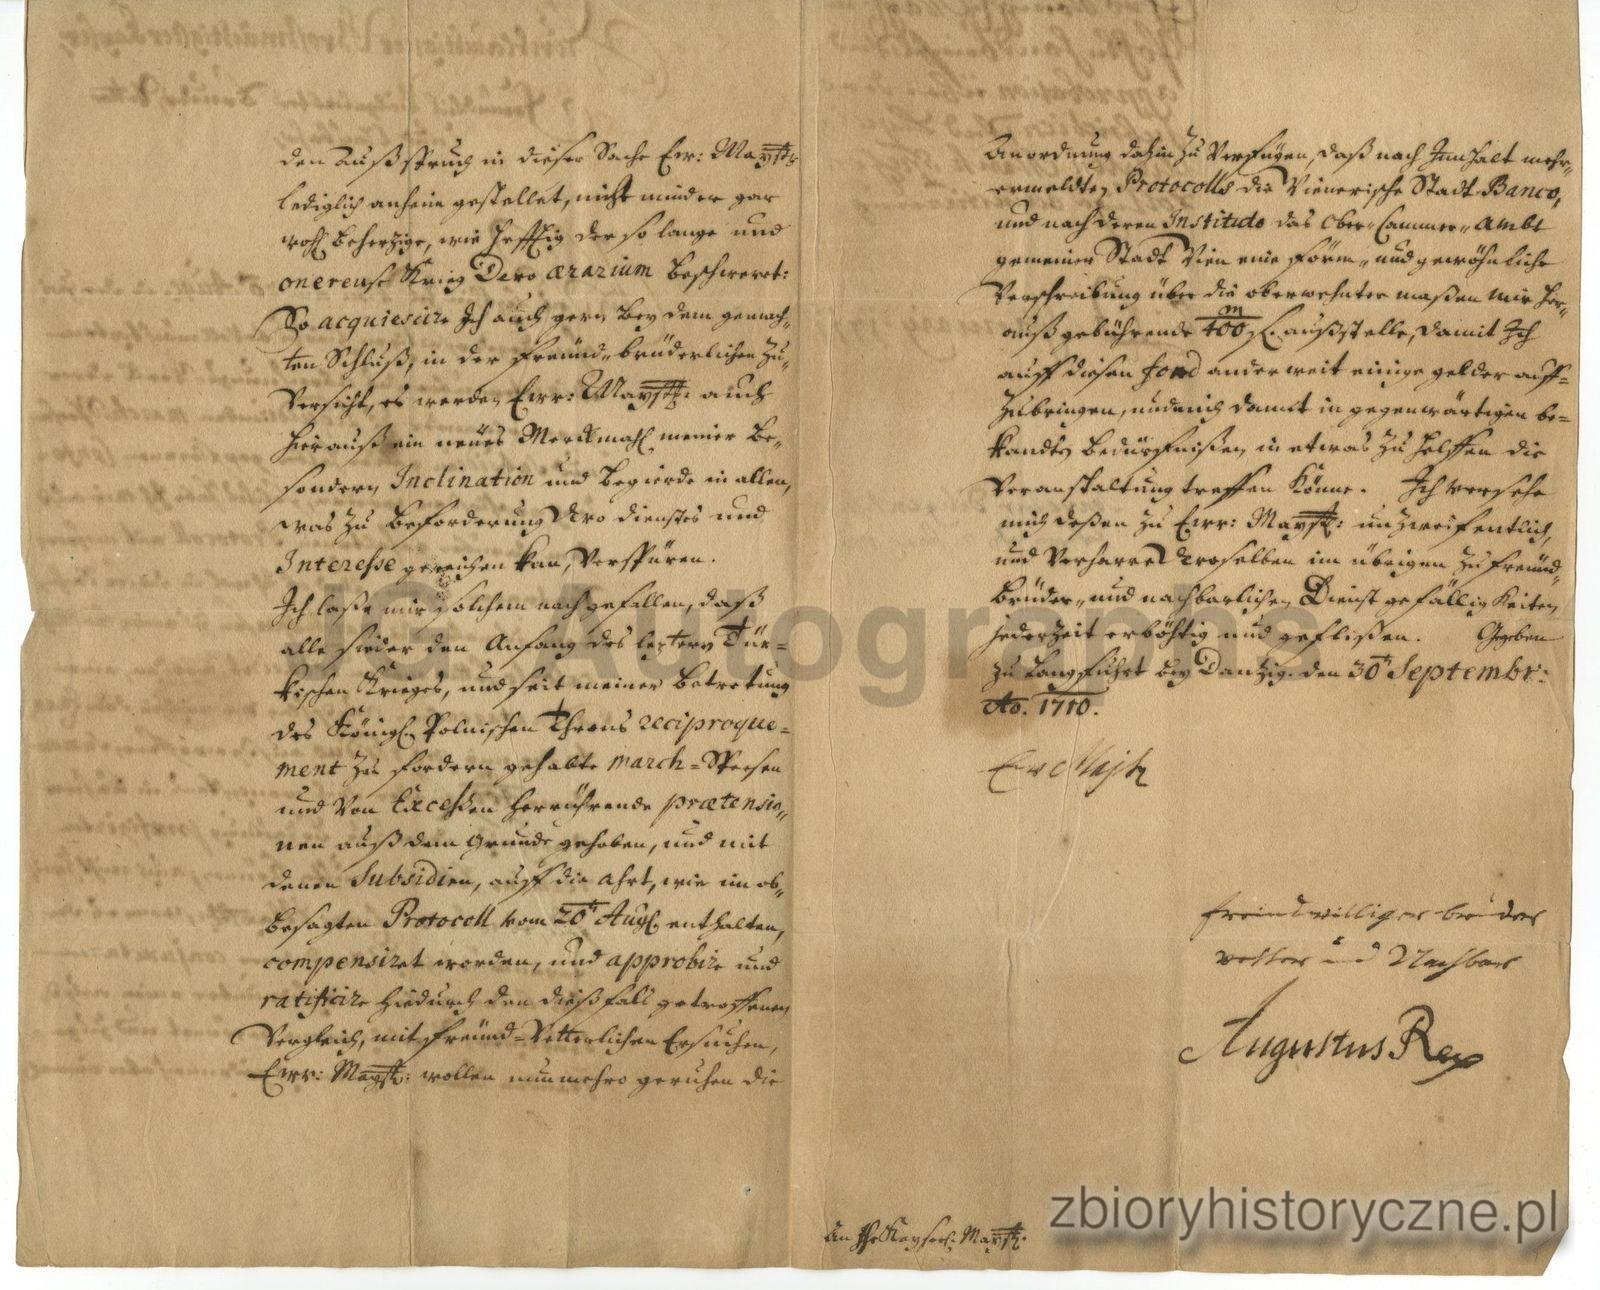 den Außspruch in dieser Sache Ew: Mayst:
lediglich anheim gestellet, nicht minder gar
wohl beherzige, wie hefftig der so lange und
onereuse Krieg Dero ærarium beschweret:
So acquiescire Ich auch gern bey dem gemach-
ten Schluß, in der freünd- brüderlichen Zu-
versicht, es werden Ew: Mayst: auch
hierauß ein neües Merckmahl meiner be-
sondern Inclination und begierde in allen,
was zu beforderung Dero dienstes und
Interesse gereichen kan, verspüren.
Ich laße mir solchem nach gefallen, daß
alle sieder den Anfang des leztern Tür-
kischen Krieges, und seit meiner betretung
des Königl. Polnischen Throns reciproque-
ment zu fordern gehabte march-Speesen
und von Excessen herrührende prætensio-
nen auß dem grunde gehoben, und mit
denen Subsidien, auf die ahrt, wie im ob-
besagten Protocoll vom 20t Aug. enthalten,
compensiret worden, und approbire und
ratificire hiedurch den dießfalls getroffenen
Vergleich, mit freünd-Vetterlichen Ersuchen,
Ew: Mayst: wollen nunmehro geruhen die
Anordnung dahin zu verfügen, daß nach Innhalt mehr-
ermeldten Protocolls die Wienerische Stadt Banco,
und nach deren Instituto das Ober-Cammer-Ambt
gemeiner Stadt Wien eine förm- und gewöhnliche
Verschreibung über die oberwehnter maßen mir her-
auß gebührende 400 m fl. außstelle, damit Ich
auff diesen fond anderweit einige gelder auff-
zubringen, und mich damit in gegenwärtigen be-
kandten bedürfnißen in etwas zu helffen die
Veranstaltung treffen könne. Ich versehe
mich deßen zu Ew: Mayst: unzweifentlich,
und verharre Deroselben im übrigen zu freünd-
brüder- und nachbarlichen Dienstgefälligkeiten
jederzeit erböhtig und gefließen. Gegeben
zu Langfuhrt bey Dantzig den 30t Septembr:
Ao. 1710.
Ew Majt
freindwilliger bruder
vetter und Nachbar
Augustus Rex
An Ihr Kayserl: Mayst:
JG Autographs
zbioryhistoryczne.pl